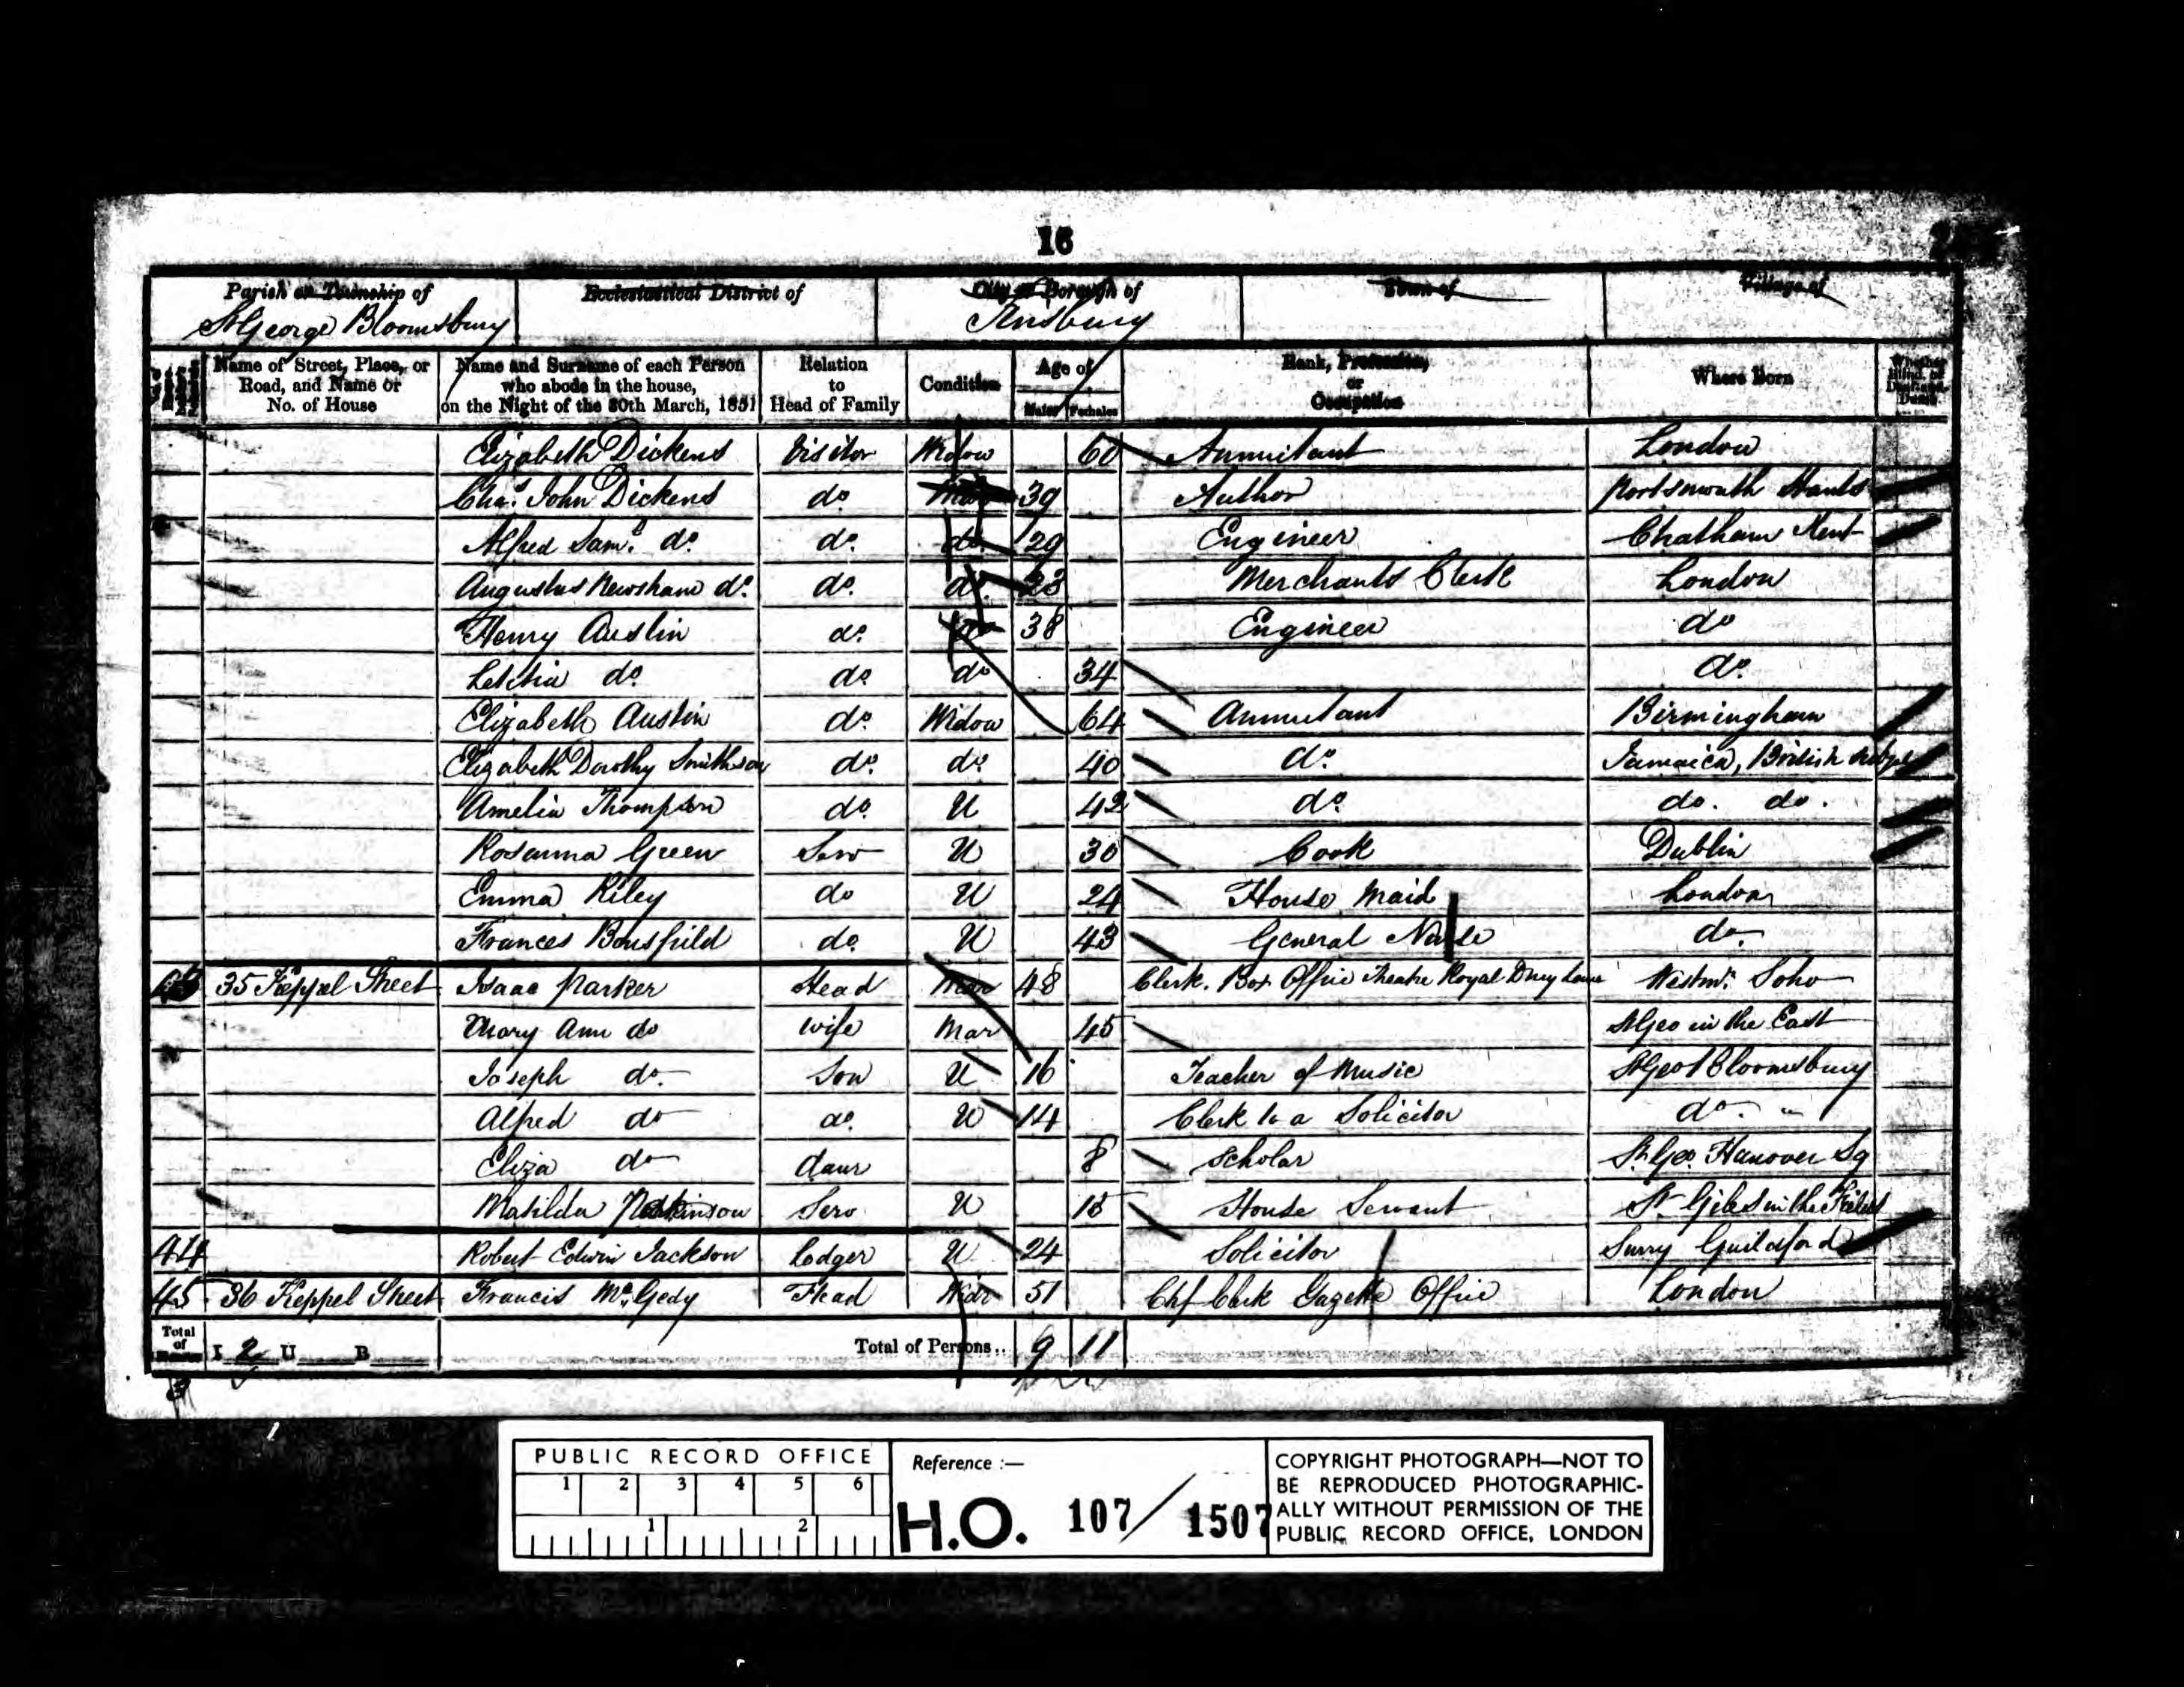 16
Parish or Township of Ecclesiastical District of City or Borough of Town of Village of
St George Bloomsbury Finsbury
Name of Street, Place, or Road, and Name or No. of House
Name and Surname of each Person who abode in the house, on the Night of the 30th March, 1851
Relation to Head of Family
Condition
Age of
Males Females
Rank, Profession, or Occupation
Where Born
Whether Blind, or Deaf-and-Dumb
Elizabeth Dickens Visitor Widow 60 Annuitant London
Chas. John Dickens do. Mar 39 Author Portsmouth Hants
Alfred Saml. do. do. do. 29 Engineer Chatham Kent
Augustus Newsham do. do. do. 23 Merchants Clerk London
Henry Austin do. do 38 Engineer do
Letitia do. do. do 34 do.
Elizabeth Austin do. Widow 64 Annuitant Birmingham
Elizabeth Dorothy Smithson do. do. 40 do. Jamaica, British
Amelia Thompson do. U 42 do. do. do.
Rosanna Green Serv U 30 Cook Dublin
Emma Riley do U 24 House Maid London
Frances Bousfield do. U 43 General Nurse do.
35 Keppel Street Isaac Parker Head Mar 48 Clerk. Box Office Theatre Royal Drury Lane Westmr. Soho
Mary Ann do Wife Mar 45 St Geo in the East
Joseph do. Son U 16 Teacher of Music St Geo Bloomsbury
Alfred do do. U 14 Clerk to a Solicitor do. "
Eliza do Daur 8 Scholar St. Geo. Hanover Sq
Matilda Serv U House Servant St Giles in the Fields
44 Robert Edwin Jackson Lodger U 24 Solicitor Surry Guildford
45 36 Keppel Street Francis McGedy Head Widr 51 Chf Clerk Gazette Office London
Total of Houses I 2 U B Total of Persons.. 9 11
3
PUBLIC RECORD OFFICE
1 2 3 4 5 6
1 2
Reference :—
H.O. 107/1507
COPYRIGHT PHOTOGRAPH—NOT TO
BE REPRODUCED PHOTOGRAPHIC-
ALLY WITHOUT PERMISSION OF THE
PUBLIC RECORD OFFICE, LONDON